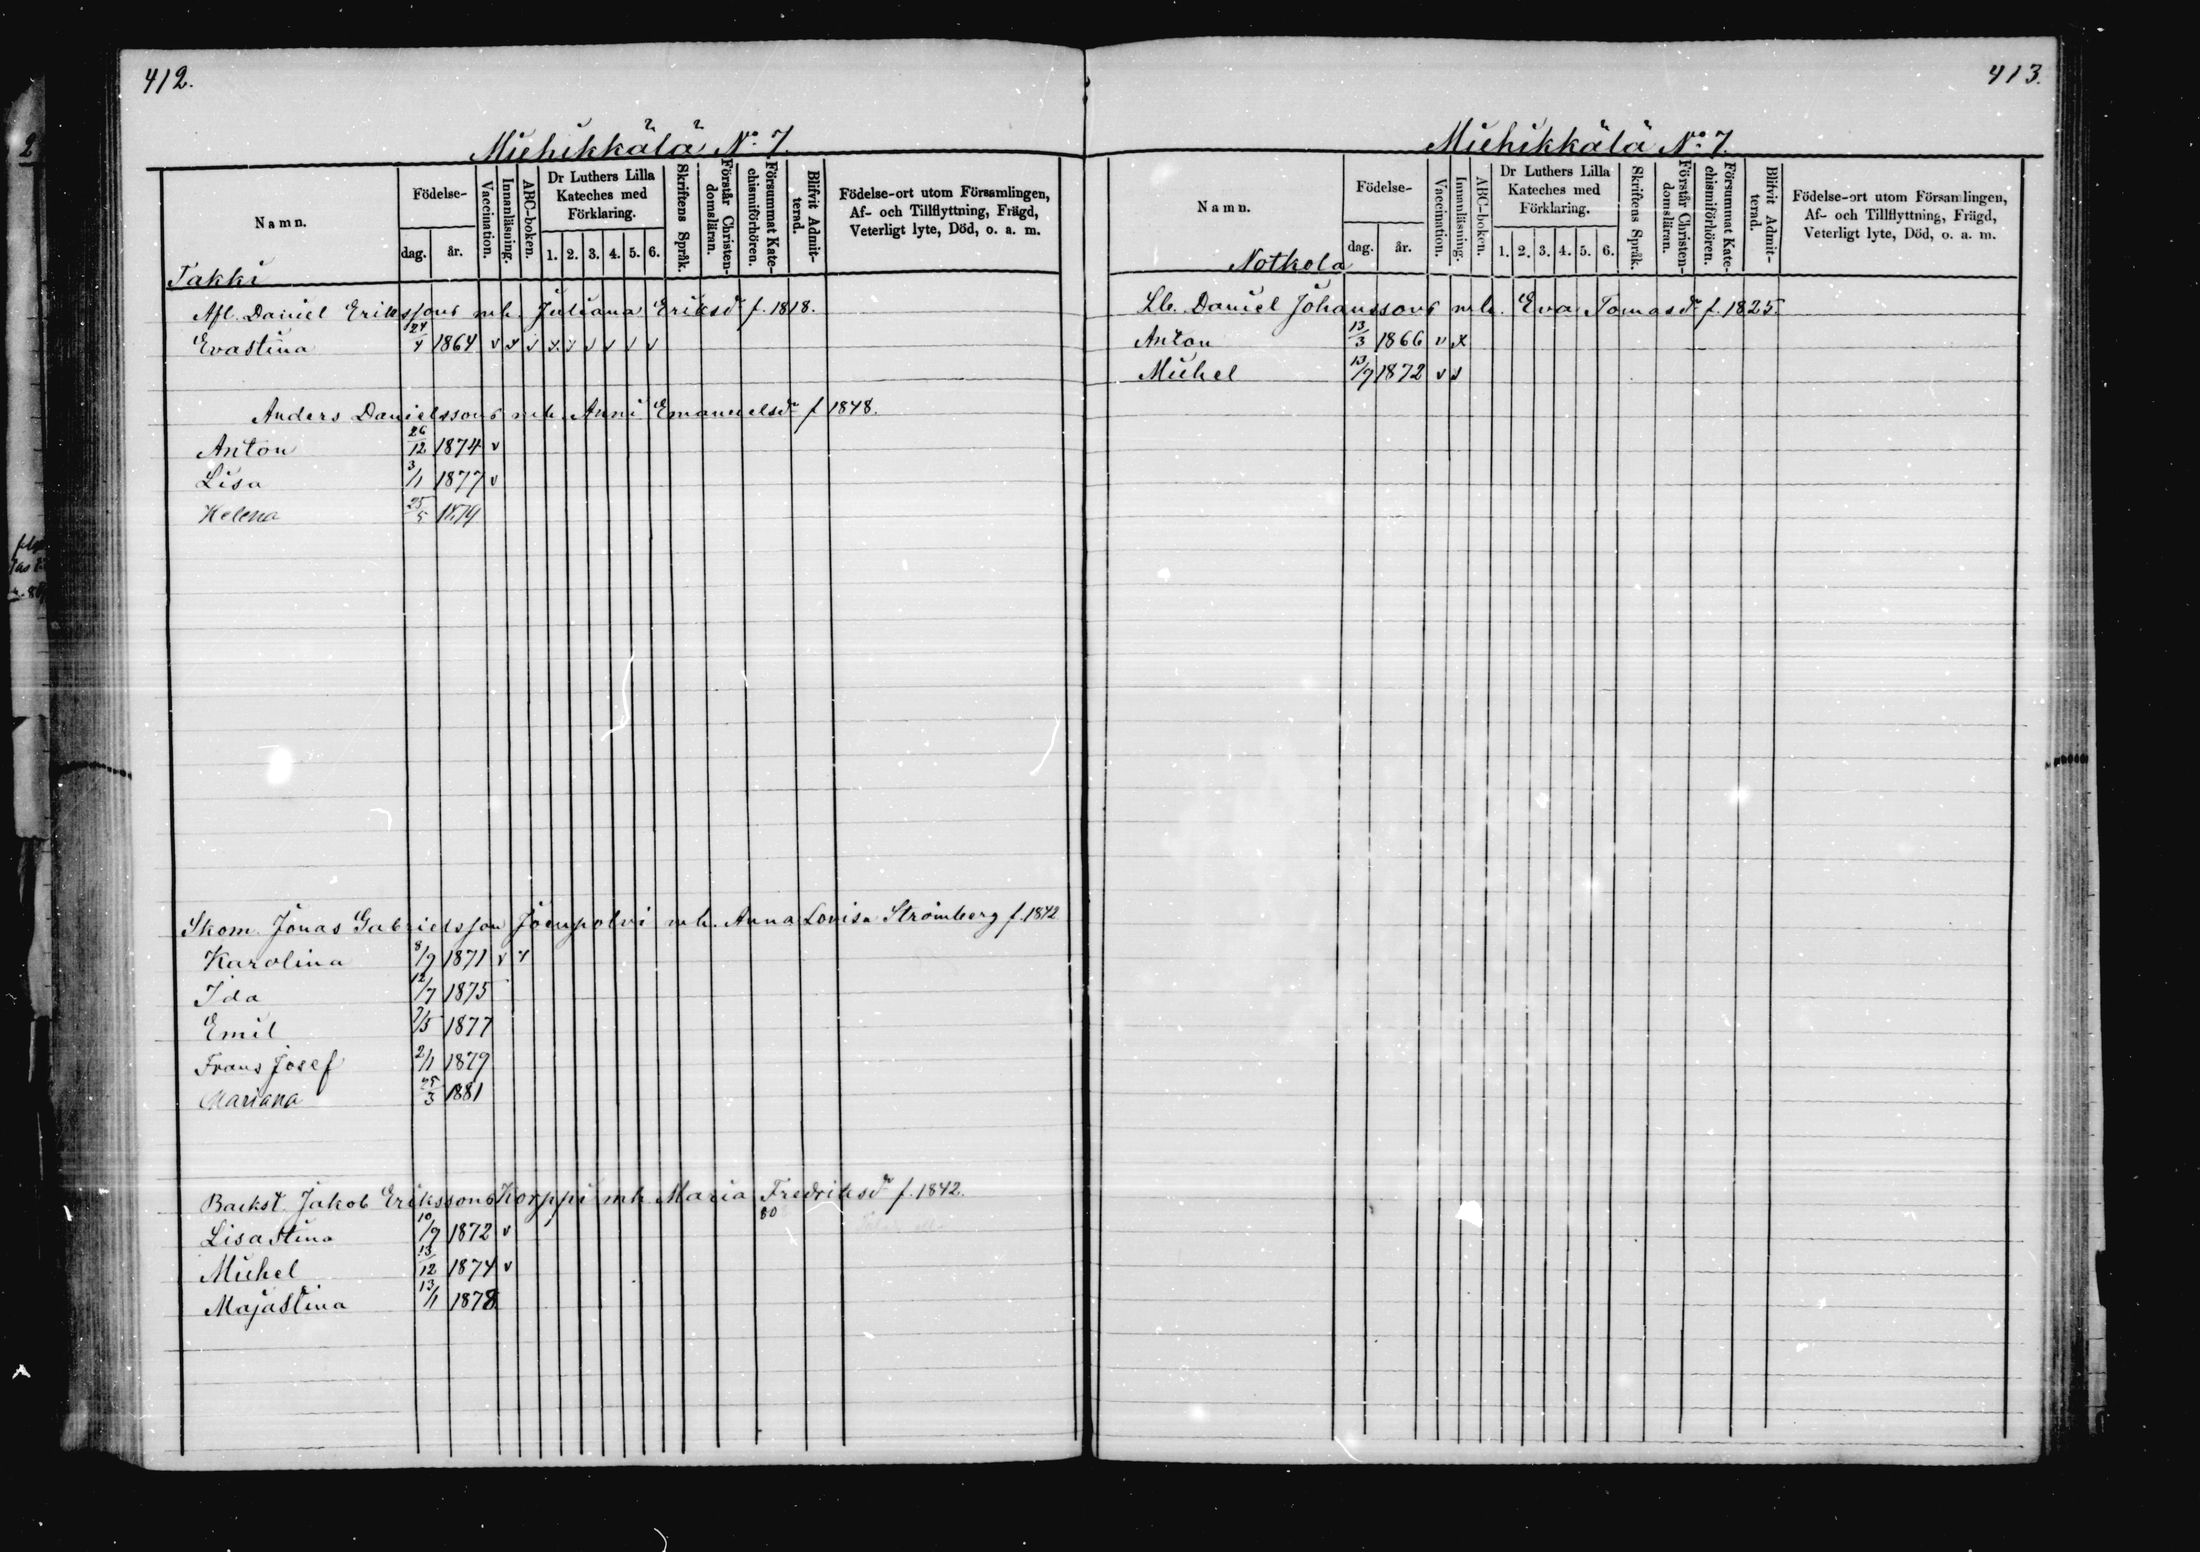 412.
Miehikkälä No 7.
Namn.
Födelse-
dag.
år.
Vaccination.
Innanläsning.
ABC-boken.
Dr Luthers Lilla
Kateches med
Förklaring.
1. 2. 3. 4. 5. 6.
Skriftens Språk.
Förstår Christen-
domsläran.
Försummat Kate-
chismiförhören.
Blifvit Admit-
terad.
Födelse-ort utom Församlingen,
Af- och Tillflyttning, Frägd,
Veterligt lyte, Död, o. a. m.
Takki
Afl. Daniel Erikssons mh. Juliana Eriksdr f. 1818.
Evastina 24/4 1864 v x v x v v v v v
Anders Danielssons mh. Anni Emanuelsdr f 1848.
Anton 26/12 1874 v
Lisa 3/1 1877 v
Helena 25/5 1879
Skom. Jonas Gabrielsson Joenpolvi mh. Anna Lovisa Strömberg f. 1842
Karolina 8/9 1871 v v
Ida 12/7 1875
Emil 7/5 1877
Frans Josef 2/1 1879
Mariana 25/3 1881
Backst. Jakob Erikssons Korppi mh Maria Fredriksdr f. 1842.
80
Lisastina 10/9 1872 v
Mikel 13/12 1874 v
Majastina 13/1 1878
413.
Miehikkälä No 7.
Namn.
Födelse-
dag.
år.
Vaccination.
Innanläsning.
ABC-boken.
Dr Luthers Lilla
Kateches med
Förklaring.
1. 2. 3. 4. 5. 6.
Skriftens Språk.
Förstår Christen-
domsläran.
Försummat Kate-
chismiförhören.
Blifvit Admit-
terad.
Födelse-ort utom Församlingen,
Af- och Tillflyttning, Frägd,
Veterligt lyte, Död, o. a. m.
Notkola
Lb. Daniel Johanssons mh. Eva Tomasdr f. 1825.
Anton 13/3 1866 v x
Mikel 13/9 1872 v v